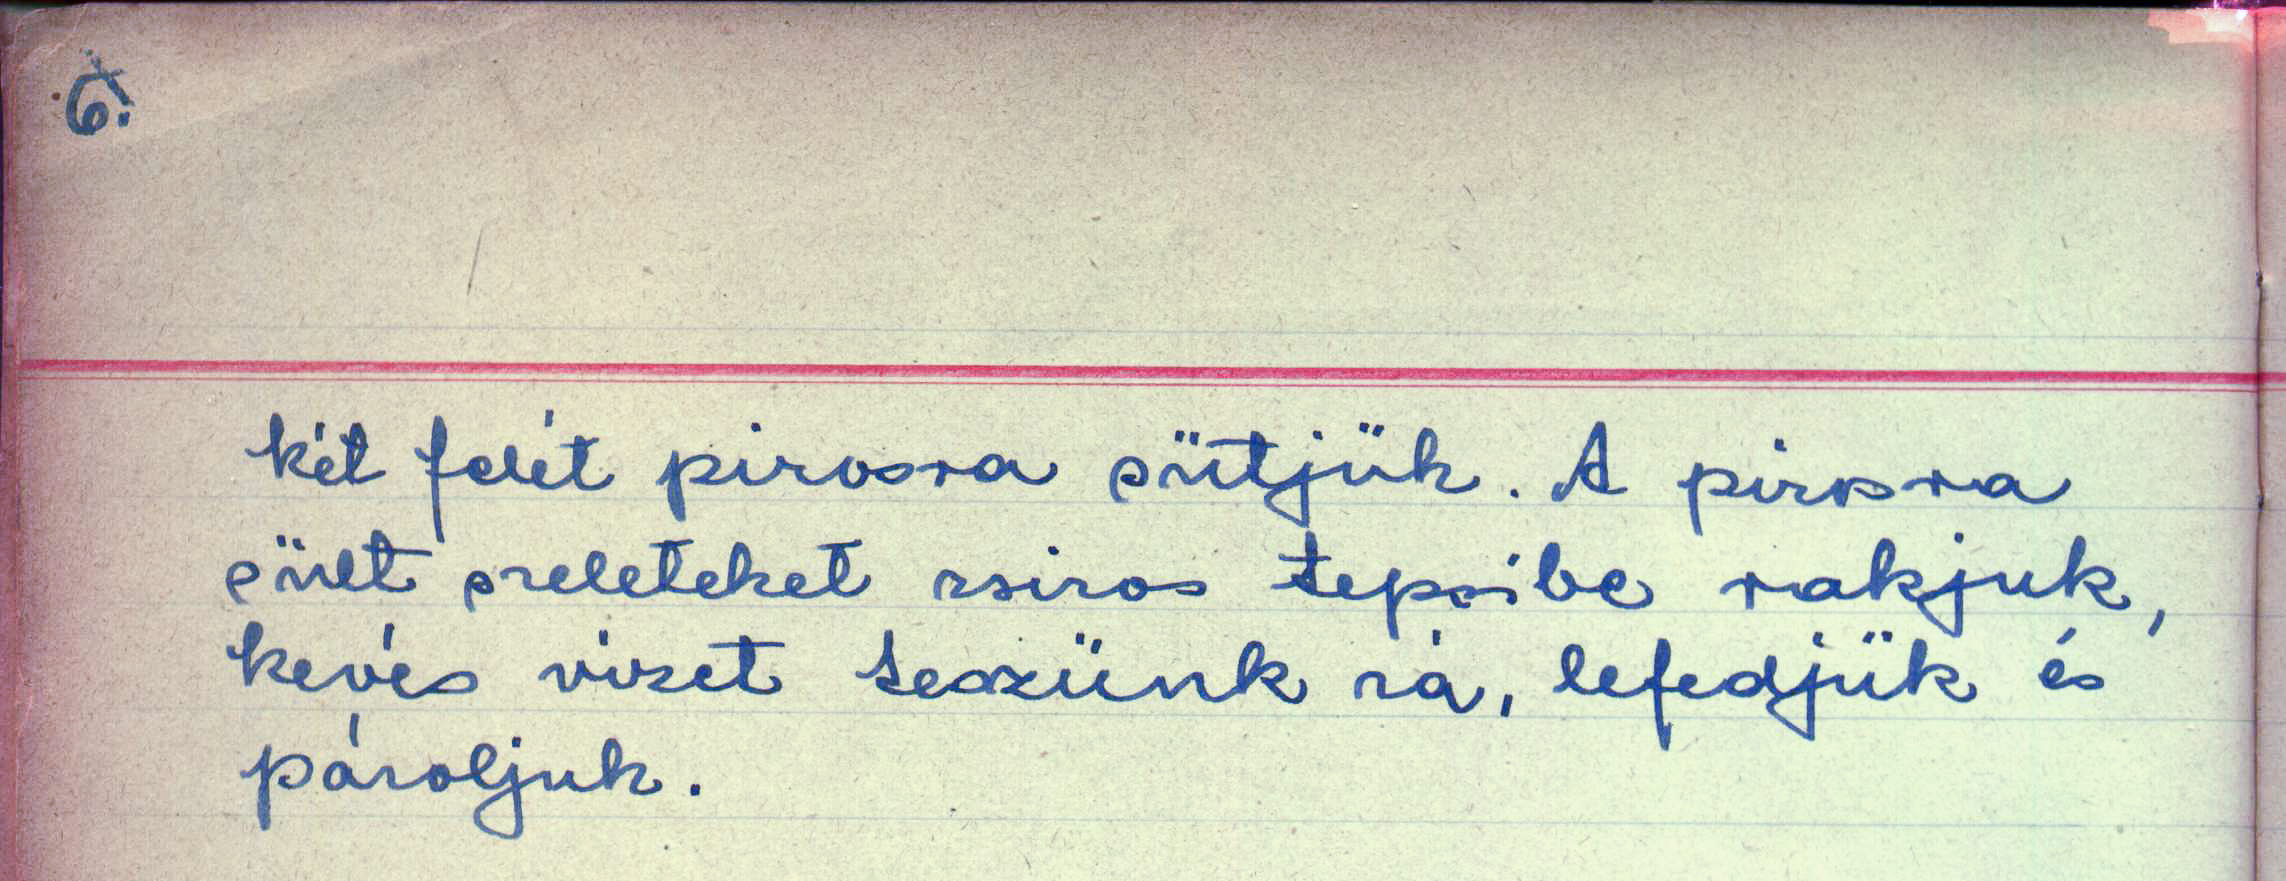 6.
két felét pirosra sütjük. A pirosra
sült szeleteket zsiros tepsibe rakjuk,
kevés vizet teszünk rá, lefedjük és
pároljuk.